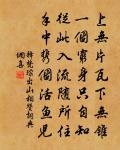 上無片瓦下無錐
一個窮身只自知
從此入流隨所住
手中個活魚兒
釋梵琮出山相贊詞典
網喜